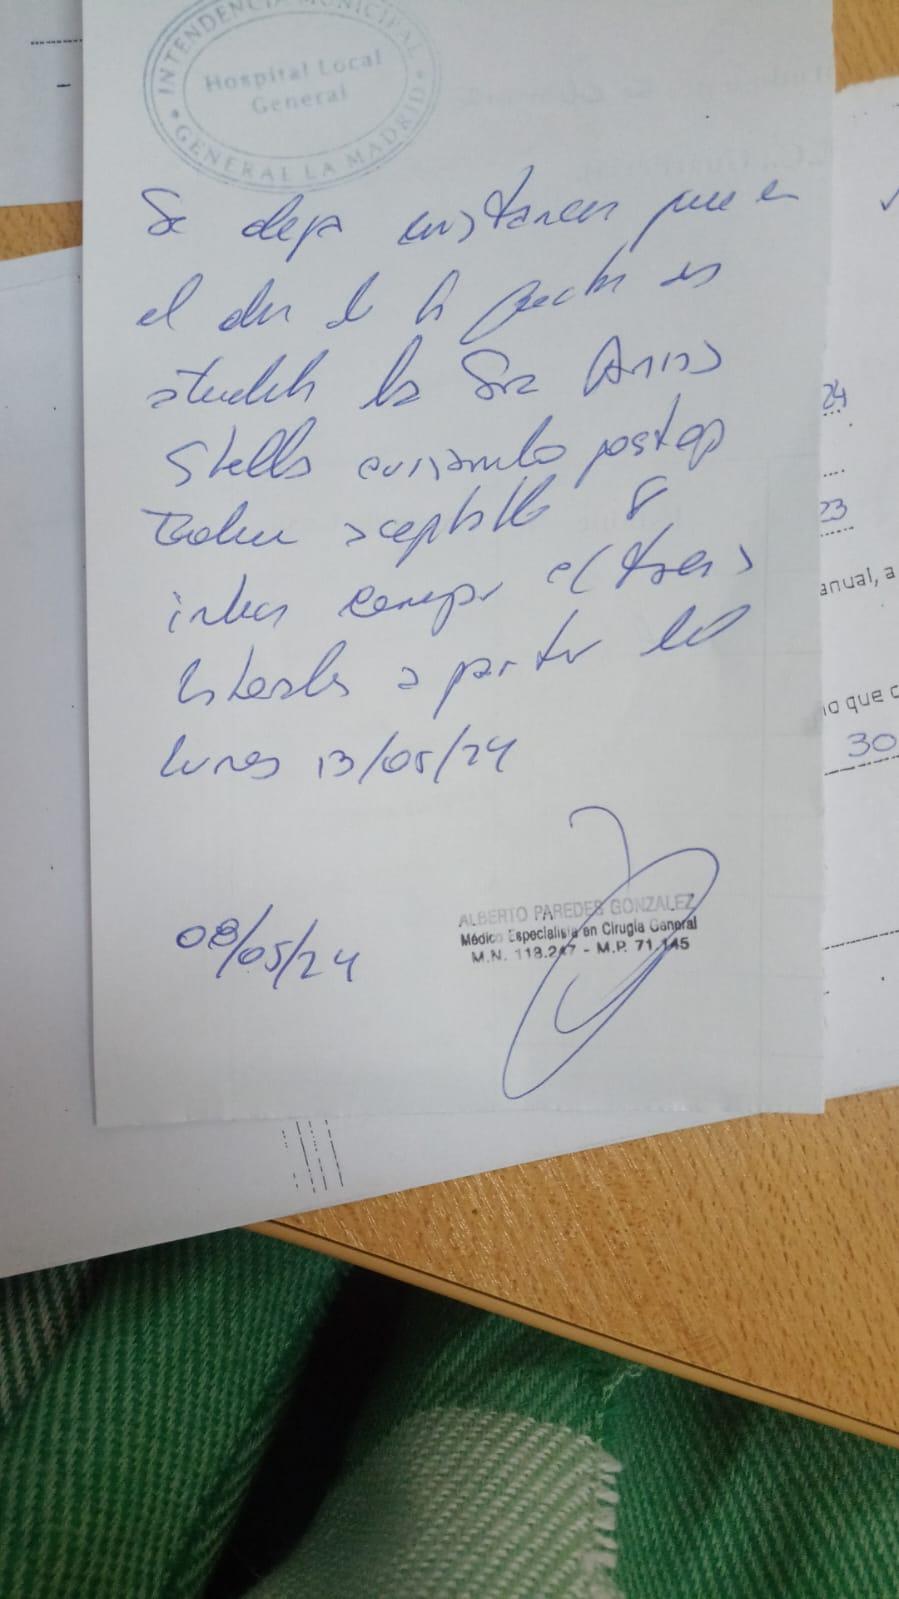 INTENDENCIA MUNICIPAL
Hospital Local
General
GENERAL LA MADRID
Se deja constancia que en
el dia de la fecha es
atendida la Sra Arias
Stella cursando postop
aceptable
el
a partir del
lunes 13/05/24
08/05/24
ALBERTO PAREDES GONZALEZ
Médico Especialista en Cirugía General
M.N. 118.247 - M.P. 71.145
24
23
anual, a
no que c
30